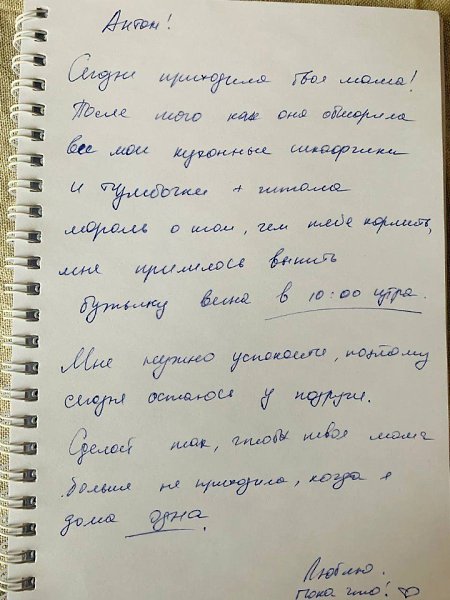 Антон!
Сегодня приходила твоя мама!
После того как она обшарила
все мои кухонные шкафчики
и тумбочки + читала
мораль о том, чем тебя кормить,
мне пришлось выпить
бутылку вина в 10:00 утра.
Мне нужно успокоится, поэтому
сегодня остаюсь у подруги.
Сделай так, чтобы твоя мама
больше не приходила, когда я
дома одна.
Люблю.
Пока что! ♡